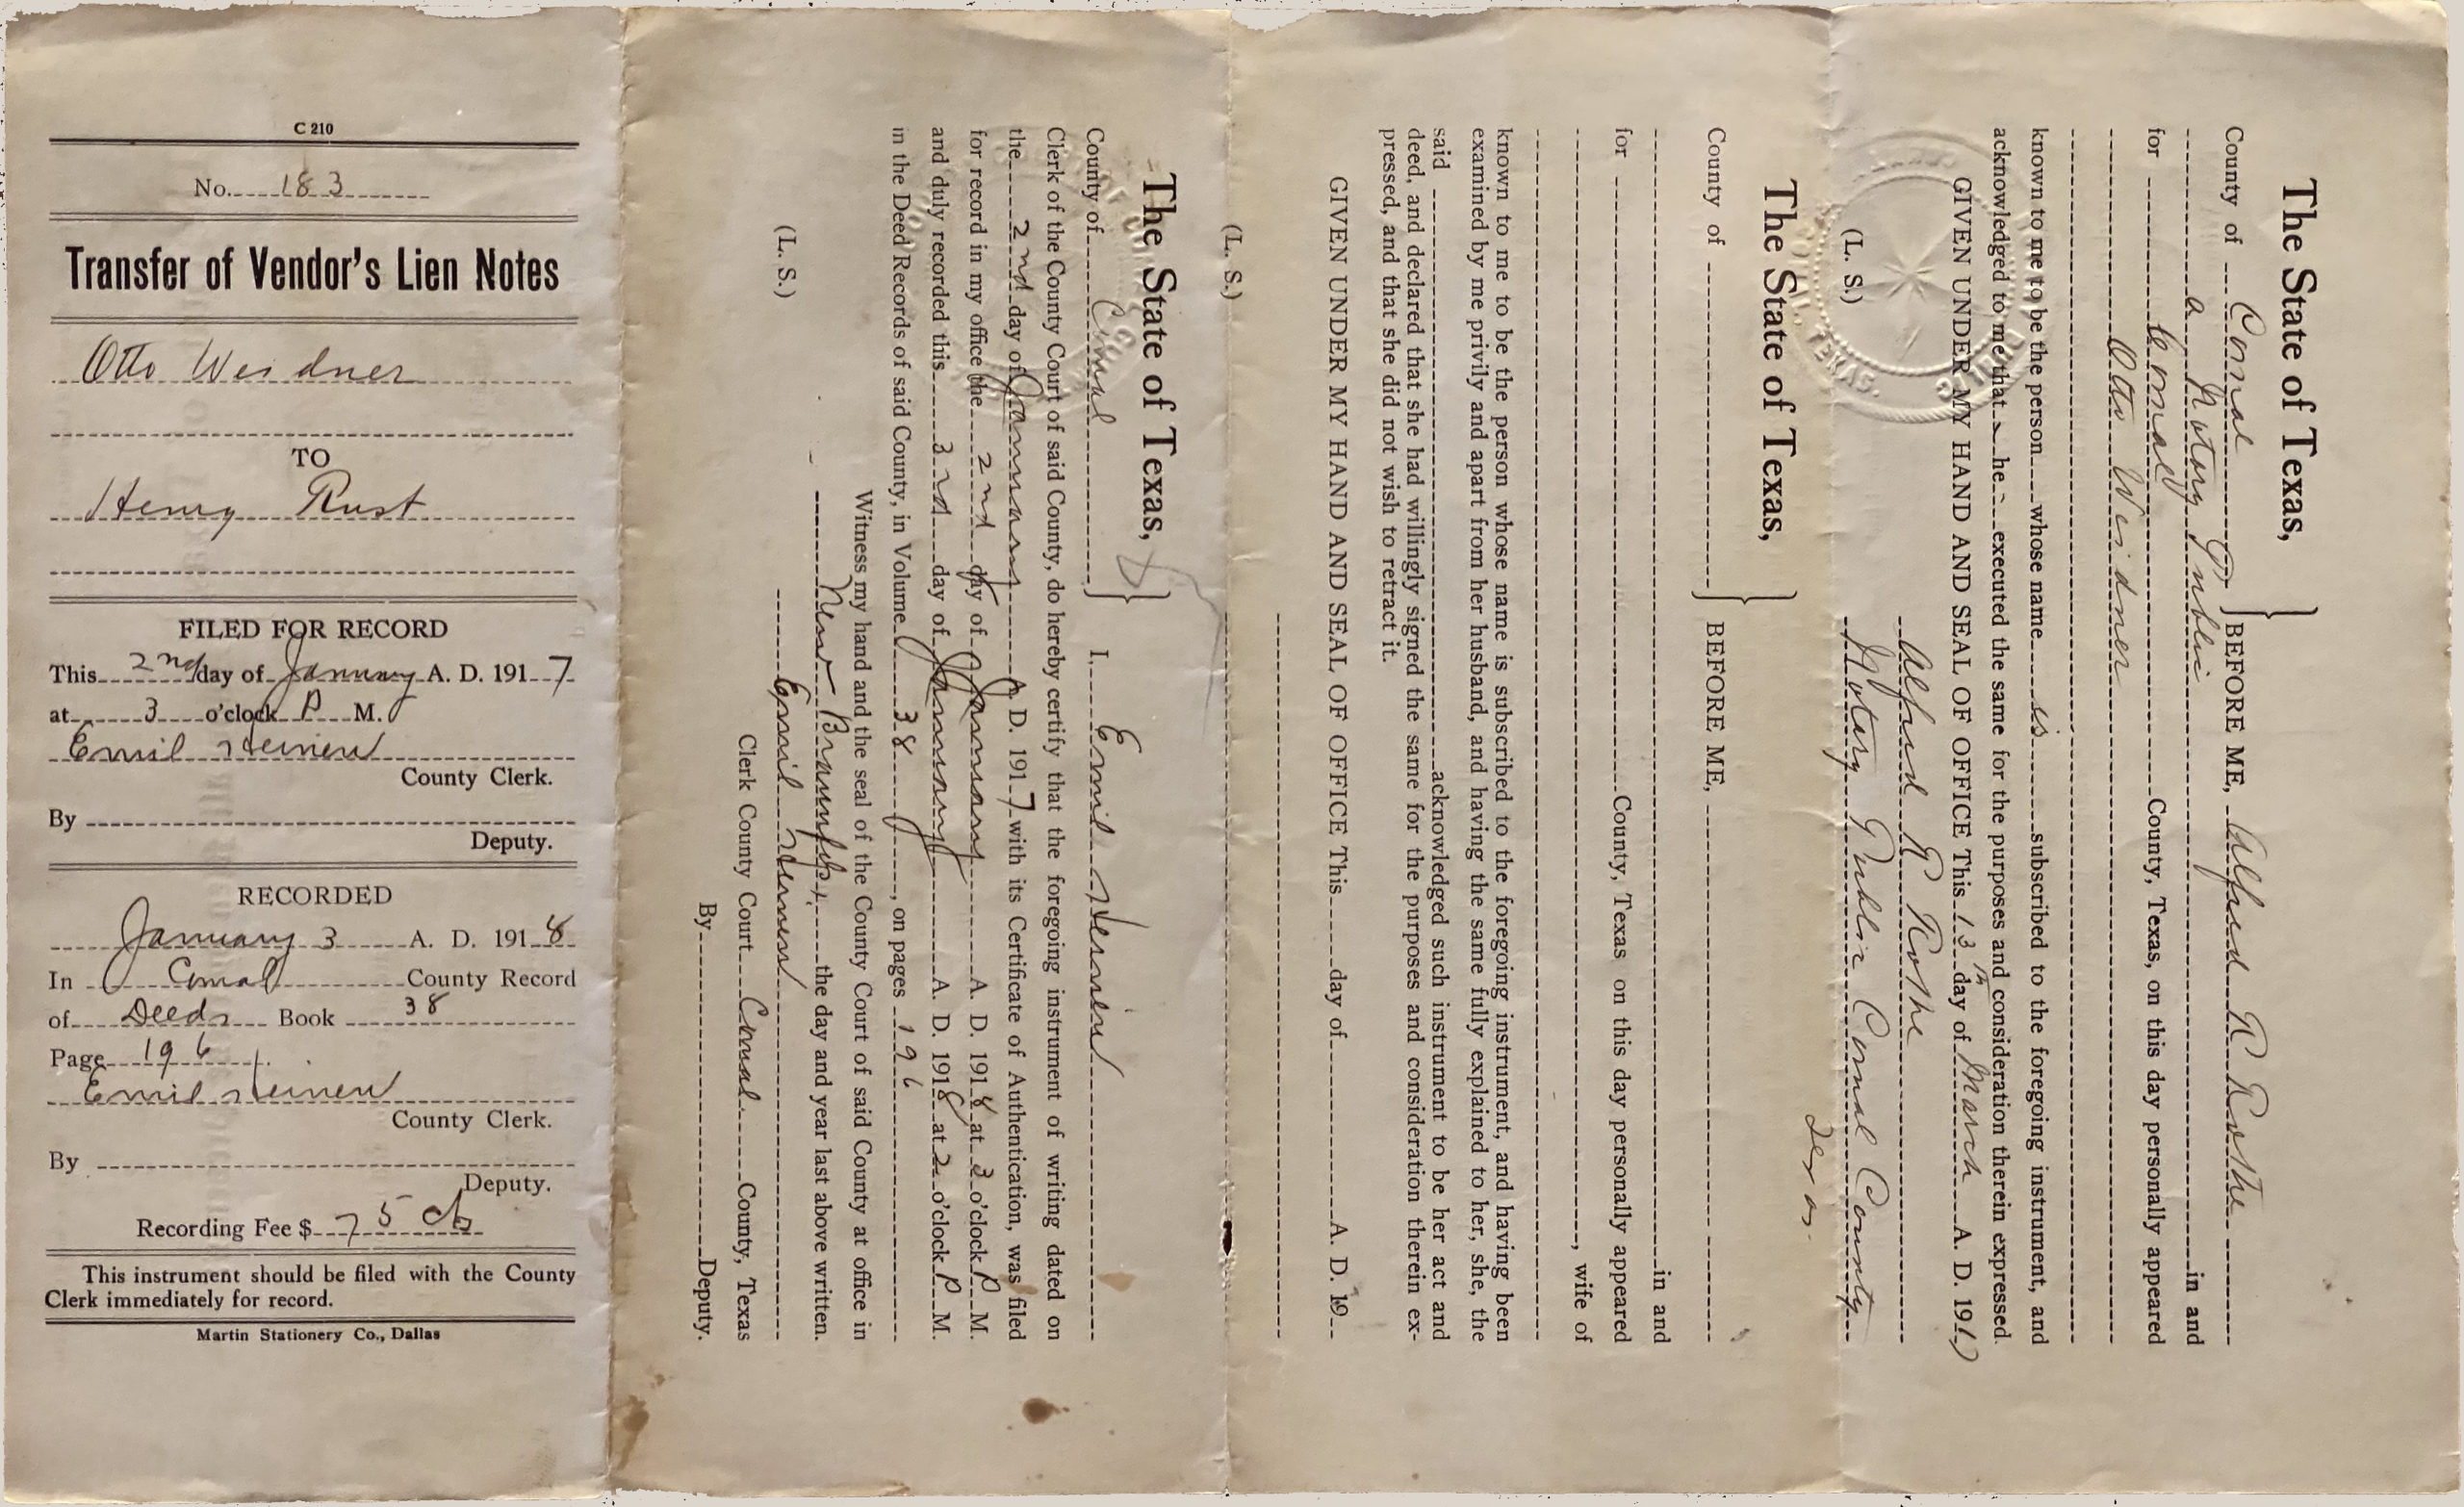 C 210
No. 183
Transfer of Vendor's Lien Notes
Otto Weidner
TO
Henry Rust
FILED FOR RECORD
This 2nd day of January A. D. 1917
at 3 o'clock P M.
Emil Heinen
County Clerk.
By
Deputy.
RECORDED
January 3 A. D. 1918
In Comal County Record
of Deeds Book 38
Page 196
Emil Heinen
County Clerk.
By
Deputy.
Recording Fee $ 75 cts
This instrument should be filed with the County
Clerk immediately for record.
Martin Stationery Co., Dallas
The State of Texas,
County of Comal BEFORE ME, Alfred R Rothe
a Notary Public in and
for Comal County, Texas, on this day personally appeared
Otto Weidner
known to me to be the person whose name is subscribed to the foregoing instrument, and
acknowledged to me that he executed the same for the purposes and consideration therein expressed.
GIVEN UNDER MY HAND AND SEAL OF OFFICE This 13 day of March A. D. 1917
Alfred R Rothe
(L. S.) Notary Public Comal County
Texas.
TEXAS.
The State of Texas,
County of BEFORE ME,
in and
for County, Texas on this day personally appeared
, wife of
known to me to be the person whose name is subscribed to the foregoing instrument, and having been
examined by me privily and apart from her husband, and having the same fully explained to her, she, the
said acknowledged such instrument to be her act and
deed, and declared that she had willingly signed the same for the purposes and consideration therein ex-
pressed, and that she did not wish to retract it.
GIVEN UNDER MY HAND AND SEAL OF OFFICE This day of A. D. 19
(L. S.)
The State of Texas,
County of Comal I, Emil Heinen
Clerk of the County Court of said County, do hereby certify that the foregoing instrument of writing dated on
the 2nd day of January A D. 1917 with its Certificate of Authentication, was filed
for record in my office the 2nd day of January A. D. 1918 at 3 o'clock P M.
and duly recorded this 3rd day of January A. D. 1918 at 2 o'clock P M.
in the Deed Records of said County, in Volume 38, on pages 196
Witness my hand and the seal of the County Court of said County at office in
New Braunfels, the day and year last above written.
(L. S.) Emil Heinen
Clerk County Court Comal County, Texas
By Deputy.